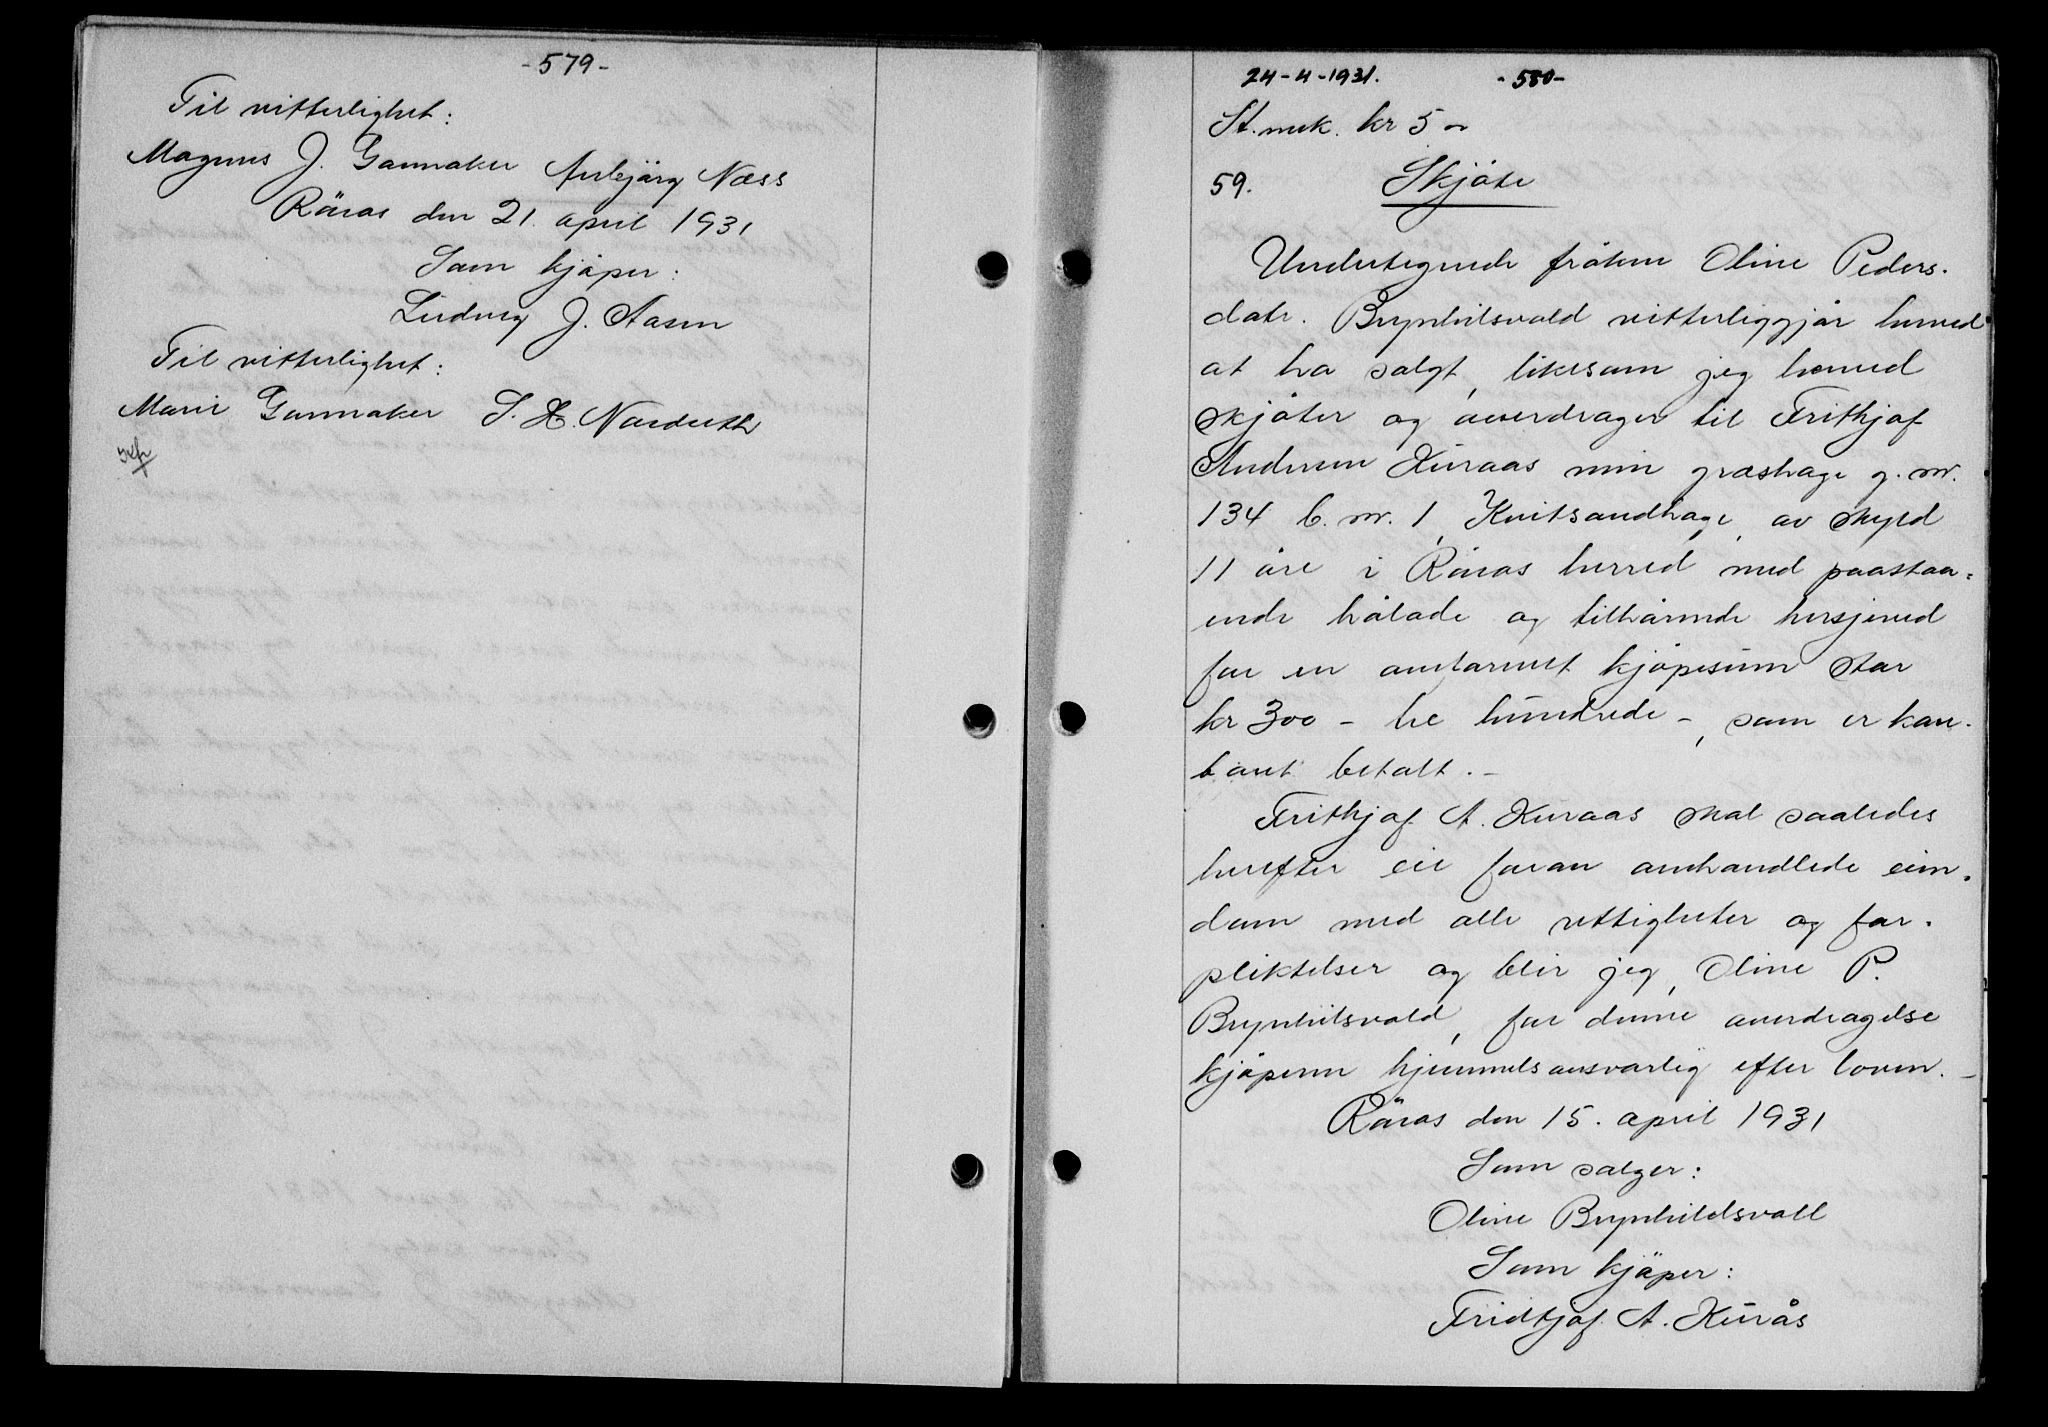 -579-
Til vitterlighet:
Magnus J. Gannaker Anbjörg Næss
Röros den 21. april 1931
Som kjöper:
Ludvig J. Aasen
Til vitterlighet:
Marie Gannaker S. H. Nordseth
24-4-1931. -580-
St. merk. kr 5 -
59. Skjöte
Undertegnede fröken Oline Peders-
datr. Brynhilsvold vitterliggjör herved
at ha solgt, likesom jeg herved
skjöter og overdrager til Frithjof
Andersen Kuraas min græshage g. nr.
134 b. nr. 1, Kvitsandhage, av skyld
11 öre i Röros herred med paastaa-
ende hölade og tilhörende hesjeved
for en omforenet kjöpesum stor
kr 300 - tre hundrede -, som er kon-
tant betalt. -
Frithjof A. Kuraas skal saaledes
herefter eie foran omhandlede eien-
dom med alle rettigheter og for-
pliktelser og blir jeg, Oline P.
Brynhilsvold, for denne overdragelse
kjöperen hjemmelsansvarlig efter loven. -
Röros den 15. april 1931
Som sælger:
Oline Brynhildsvoll
Som kjöper:
Fridtjof A. Kurås